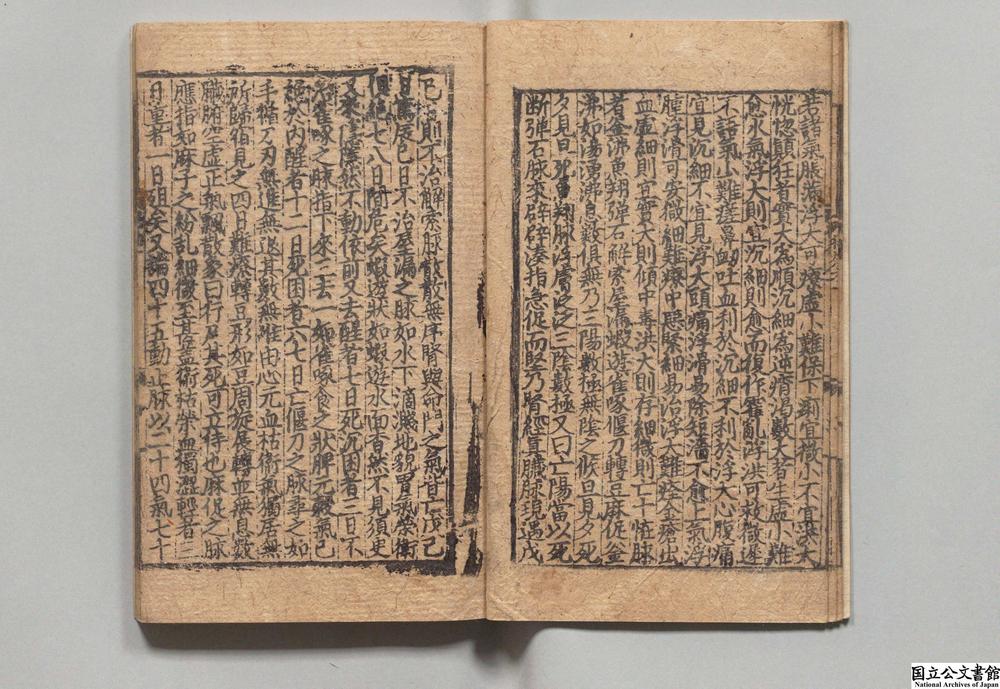 若諸氣脹漲浮大可療虛小難保下痢宜微小不宜洪大
恍惚癲狂者實大爲順沉細爲逆痟渴數大者生虛小難
愈水氣浮大則宜沉細則愈而復作霍亂浮洪可救微遲
不語氣小難瘥鼻衂吐血利於沉細不利於浮大心腹痛
宜見沉細不宜見浮大頭痛浮滑易除短濇不愈上氣浮
腫浮滑可客微細難療中惡緊細易治浮大難痊金瘡出
血虛細則宜實大則傾中毒洪大則存細微則亡十怪脉
者釜沸魚翔弹石解索屋漏蝦遊雀啄偃刀轉豆麻促釜
沸如湯湧沸息數俱無乃三陽數極無陰之候旦見夕死
夕見旦死魚翔脉浮膚泛泛三陰數極又曰亡陽當以死
断弹石脉來辟辟湊指急促而堅乃腎經真臟脉現遇戊
己則不治解索脉散散無序腎與命門之氣皆亡戊己
日篤辰巳日不治屋漏之脉如水下滴濺地貌胃氣榮衛
俱絕七八日間危矣蝦遊狀如蝦遊水面杳然不見須臾
又來隱隱然不動依前又去醒者七日死沉困者三日不
雀啄之脉指下來三去一如雀啄食之狀脾元穀氣已
絕於內醒者十二日死困者六七日亡偃刀之脉尋之如
手循刀刃無進無退其數無准由心元血枯衛氣獨居無
所歸宿見之四日難療轉豆形如豆周旋展轉並無息數
臟腑空虛正氣飄散象曰行尸其死可立待也麻促之脉
應指如麻子之紛乱細微至甚盖衛枯榮血獨澀輕者三
日重者一日殂矣又論四十五動一止脉以二十四氣七十
国立公文書館
National Archives of Japan